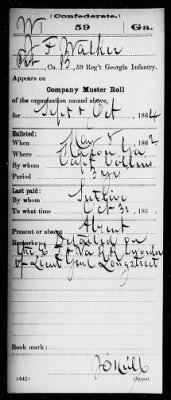 (Confederate.)
W 59 Ga.
W F Walker
Pvt, Co. B, 59 Reg't Georgia Infantry.
Appears on
Company Muster Roll
of the organization named above,
for Sept & Oct, 1864
Enlisted:
When May 8, 1862
Where Ga
By whom Capt Collins
Period 3 yr
Last paid:
By whom Sutlive
To what time Oct 31, 186
Present or absent Absent
Remarks: Detailed on
by order
of Lieut Genl Longstreet
Book mark:
(642) Copyist.